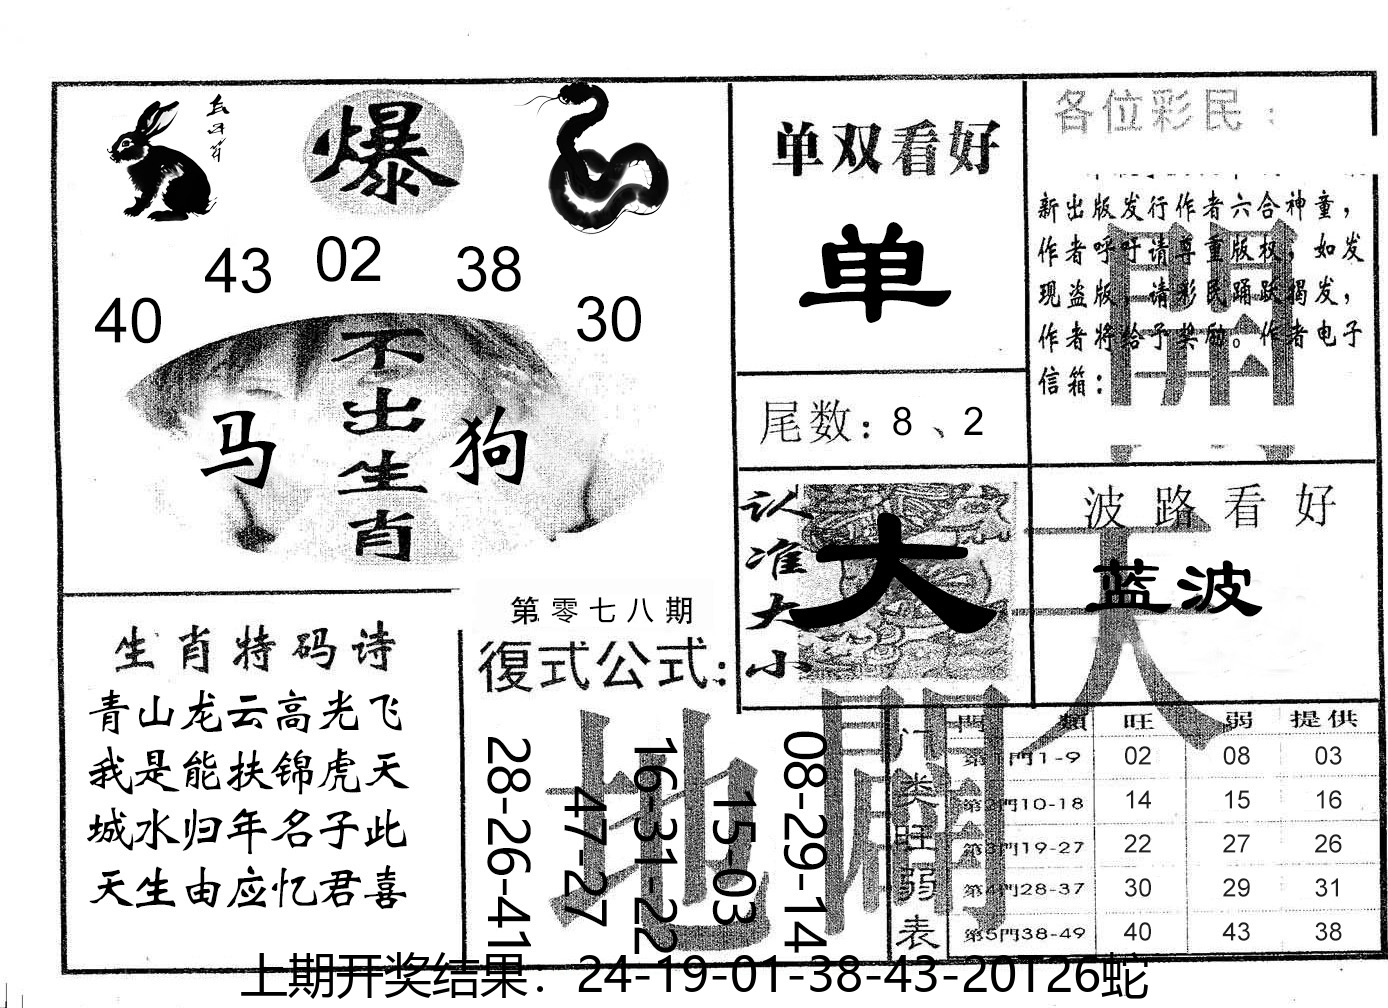 爆
43 02 38
40 30
不出生肖
马 狗
单双看好
单
尾数：8、2
各位彩民：
新出版发行作者六合神童，
作者呼吁请尊重版权，如发
现盗版，请彩民踊跃揭发，
作者将给予奖励。作者电子
信箱：
认准大小
大
波路看好
蓝波
生肖特码诗
青山龙云高光飞
我是能扶锦虎天
城水归年名子此
天生由应忆君喜
第零七八期
復式公式：
28-26-41
47-27
16-31-22
15-03
08-29-14
天
地
開
開
门类旺弱表
門類 旺 弱 提供
第1門1-9 02 08 03
第2門10-18 14 15 16
第3門19-27 22 27 26
第4門28-37 30 29 31
第5門38-49 40 43 38
上期开奖结果：24-19-01-38-43-20T26蛇